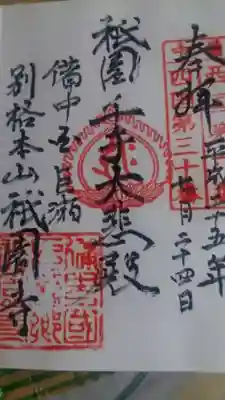 奉拜 平成二十五年
月二十四日
第三十
祇園千手大悲殿
備中国巨瀬
別格本山祇園寺